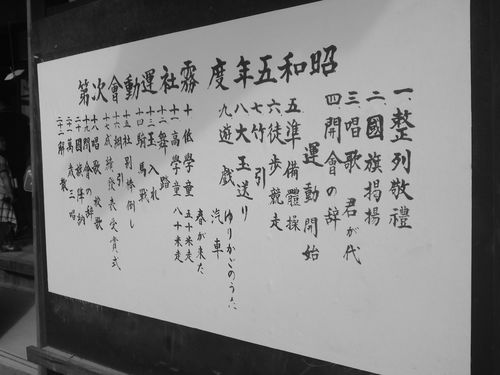 昭和五年度 霧社運動會次第
一、整列敬禮
二、國旗揭揚
三唱歌 君が代
四開會の辞
運動開始
五準備體操
六徒歩競走
七竹引
八大玉送り
九遊戲 ゆりかごのうた
汽車
春が来た
十低學童 五十米走
十一高學童 八十米走
十二舞踏
十三玉入れ
十四騎馬戦
十五社別棒倒し
十六綱引
十七成績發表受賞式
十八唱歌
十九閉會の辞
二十國旗降納
二十一萬歳三唱
二十二解散